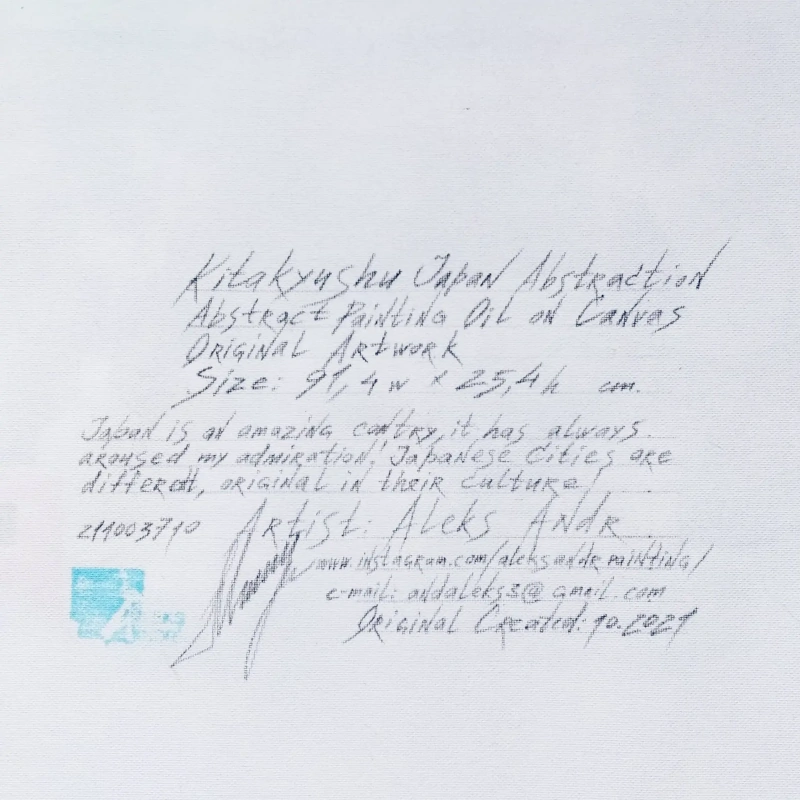 Kitakyushu Japan Abstraction
Abstract Painting Oil on Canvas
Original Artwork
Size: 91,4w x 25,4h cm.
Japan is an amazing contry, it has always
aroused my admiration! Japanese cities are
different, original in their culture!
211003710 Artist: Aleks Andr
www.instagram.com/aleksandr.painting/
e-mail: andaleks3@gmail.com
Original Created: 10.2021